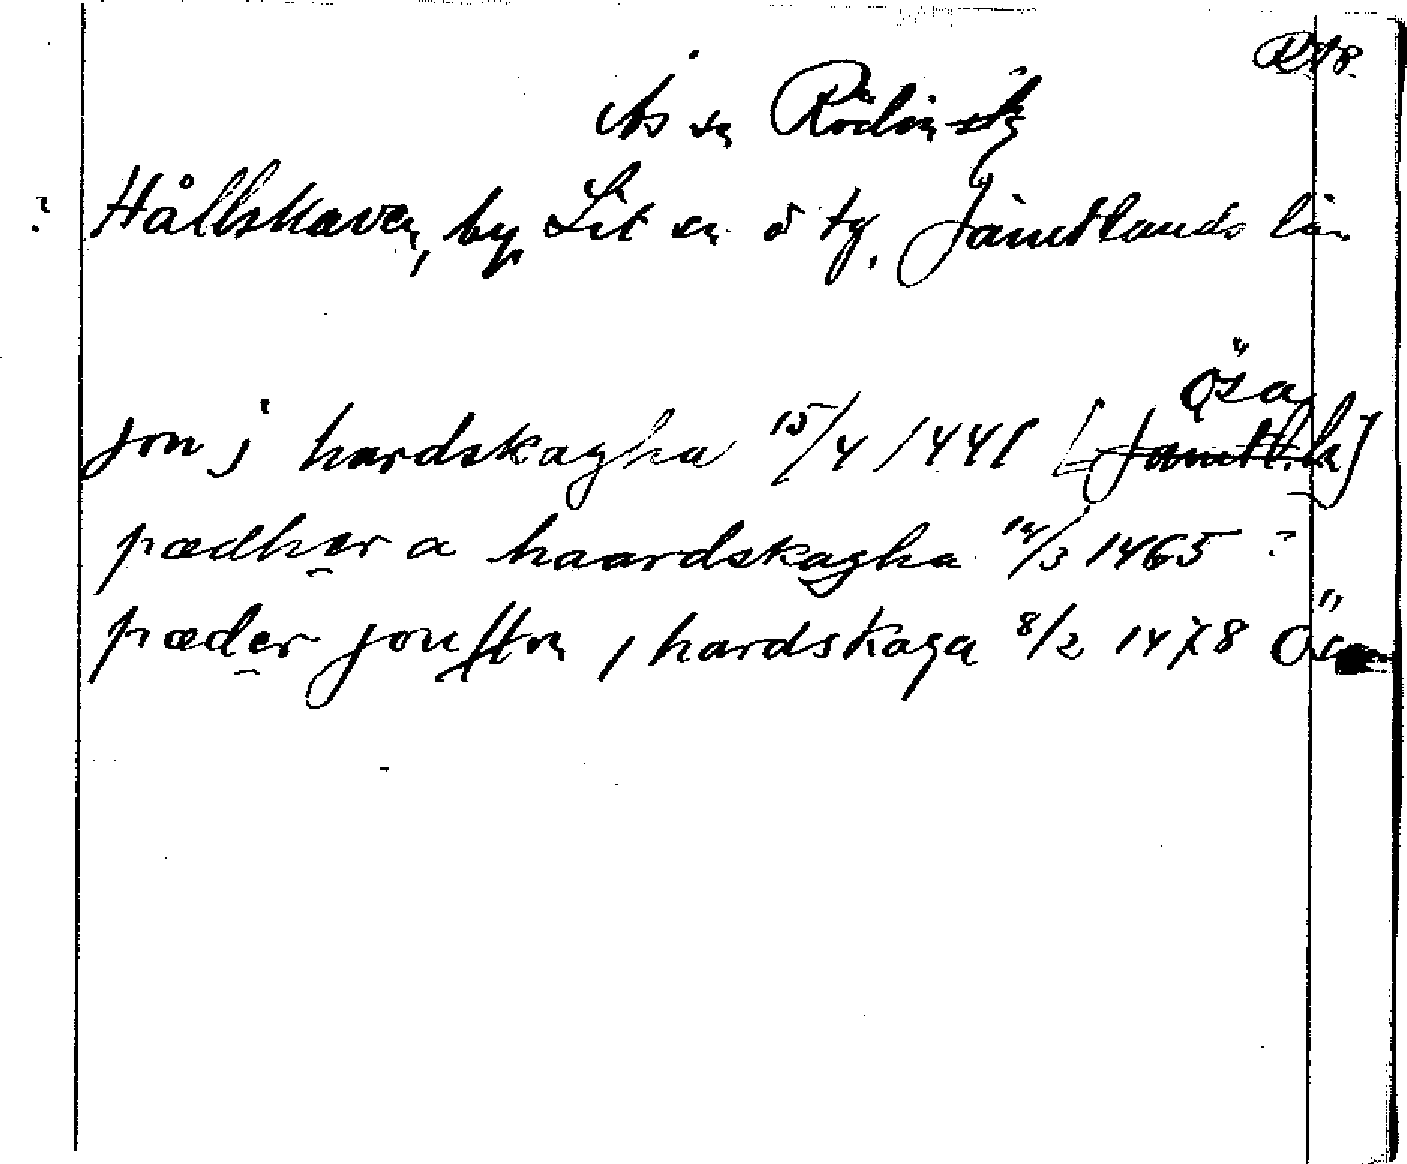 Ås sn Rödöns tg
Hållskaven, by, Lit sn o tg. Jämtlands län
ÖSa
jon j hardskagha 15/4 1441 [Jämtl. h]
pædher a haardskagha 14/3 1465 "
pæder jonsson i hardskaga 8/2 1478 ÖSa